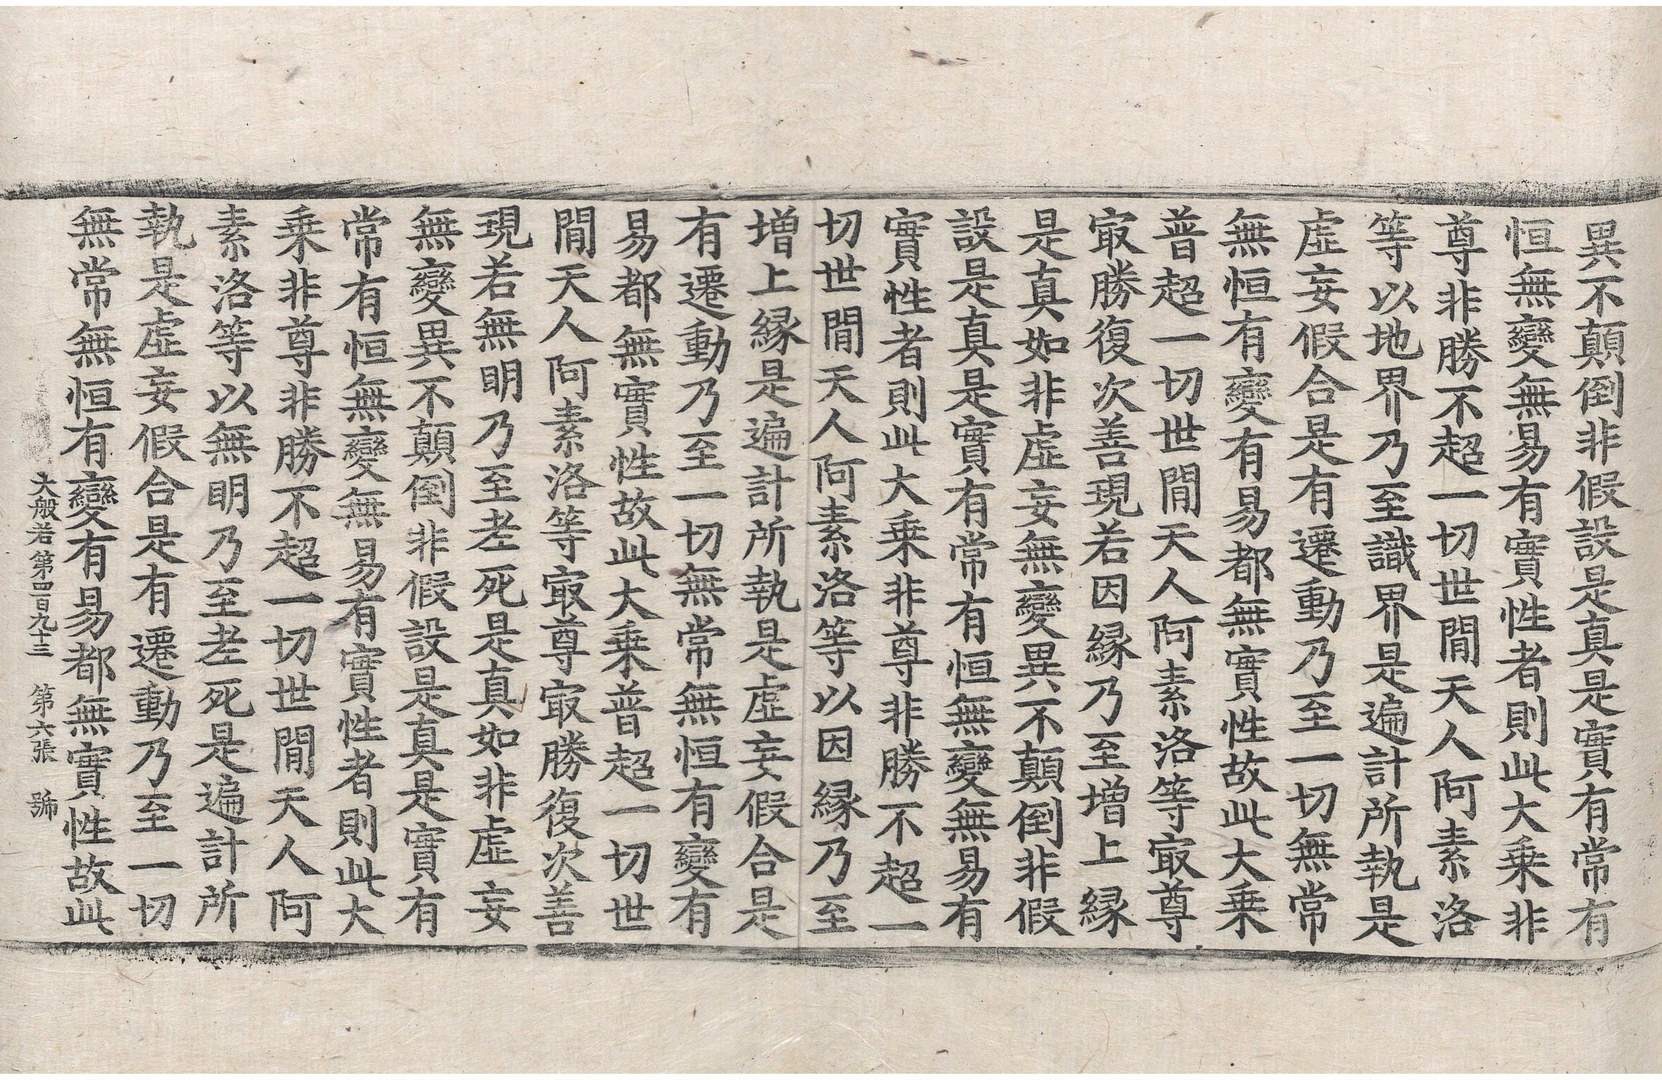 異不顛倒非假設是真是實有常有
恒無變無易有實性者則此大乗非
尊非勝不超一切世閒天人阿素洛
等以地界乃至識界是遍計所執是
虛妄假合是有遷動乃至一切無常
無恒有變有易都無實性故此大乗
普超一切世閒天人阿素洛等冣尊
冣勝復次善現若因緣乃至增上緣
是真如非虛妄無變異不顛倒非假
設是真是實有常有恒無變無易有
實性者則此大乗非尊非勝不超一
切世閒天人阿素洛等以因緣乃至
增上緣是遍計所執是虛妄假合是
有遷動乃至一切無常無恒有變有
易都無實性故此大乗普超一切世
閒天人阿素洛等冣尊冣勝復次善
現若無眀乃至老死是真如非虛妄
無變異不顛倒非假設是真是實有
常有恒無變無易有實性者則此大
乗非尊非勝不超一切世閒天人阿
素洛等以無眀乃至老死是遍計所
執是虛妄假合是有遷動乃至一切
無常無恒有變有易都無實性故此
大般若第四百九十三 第六張 號